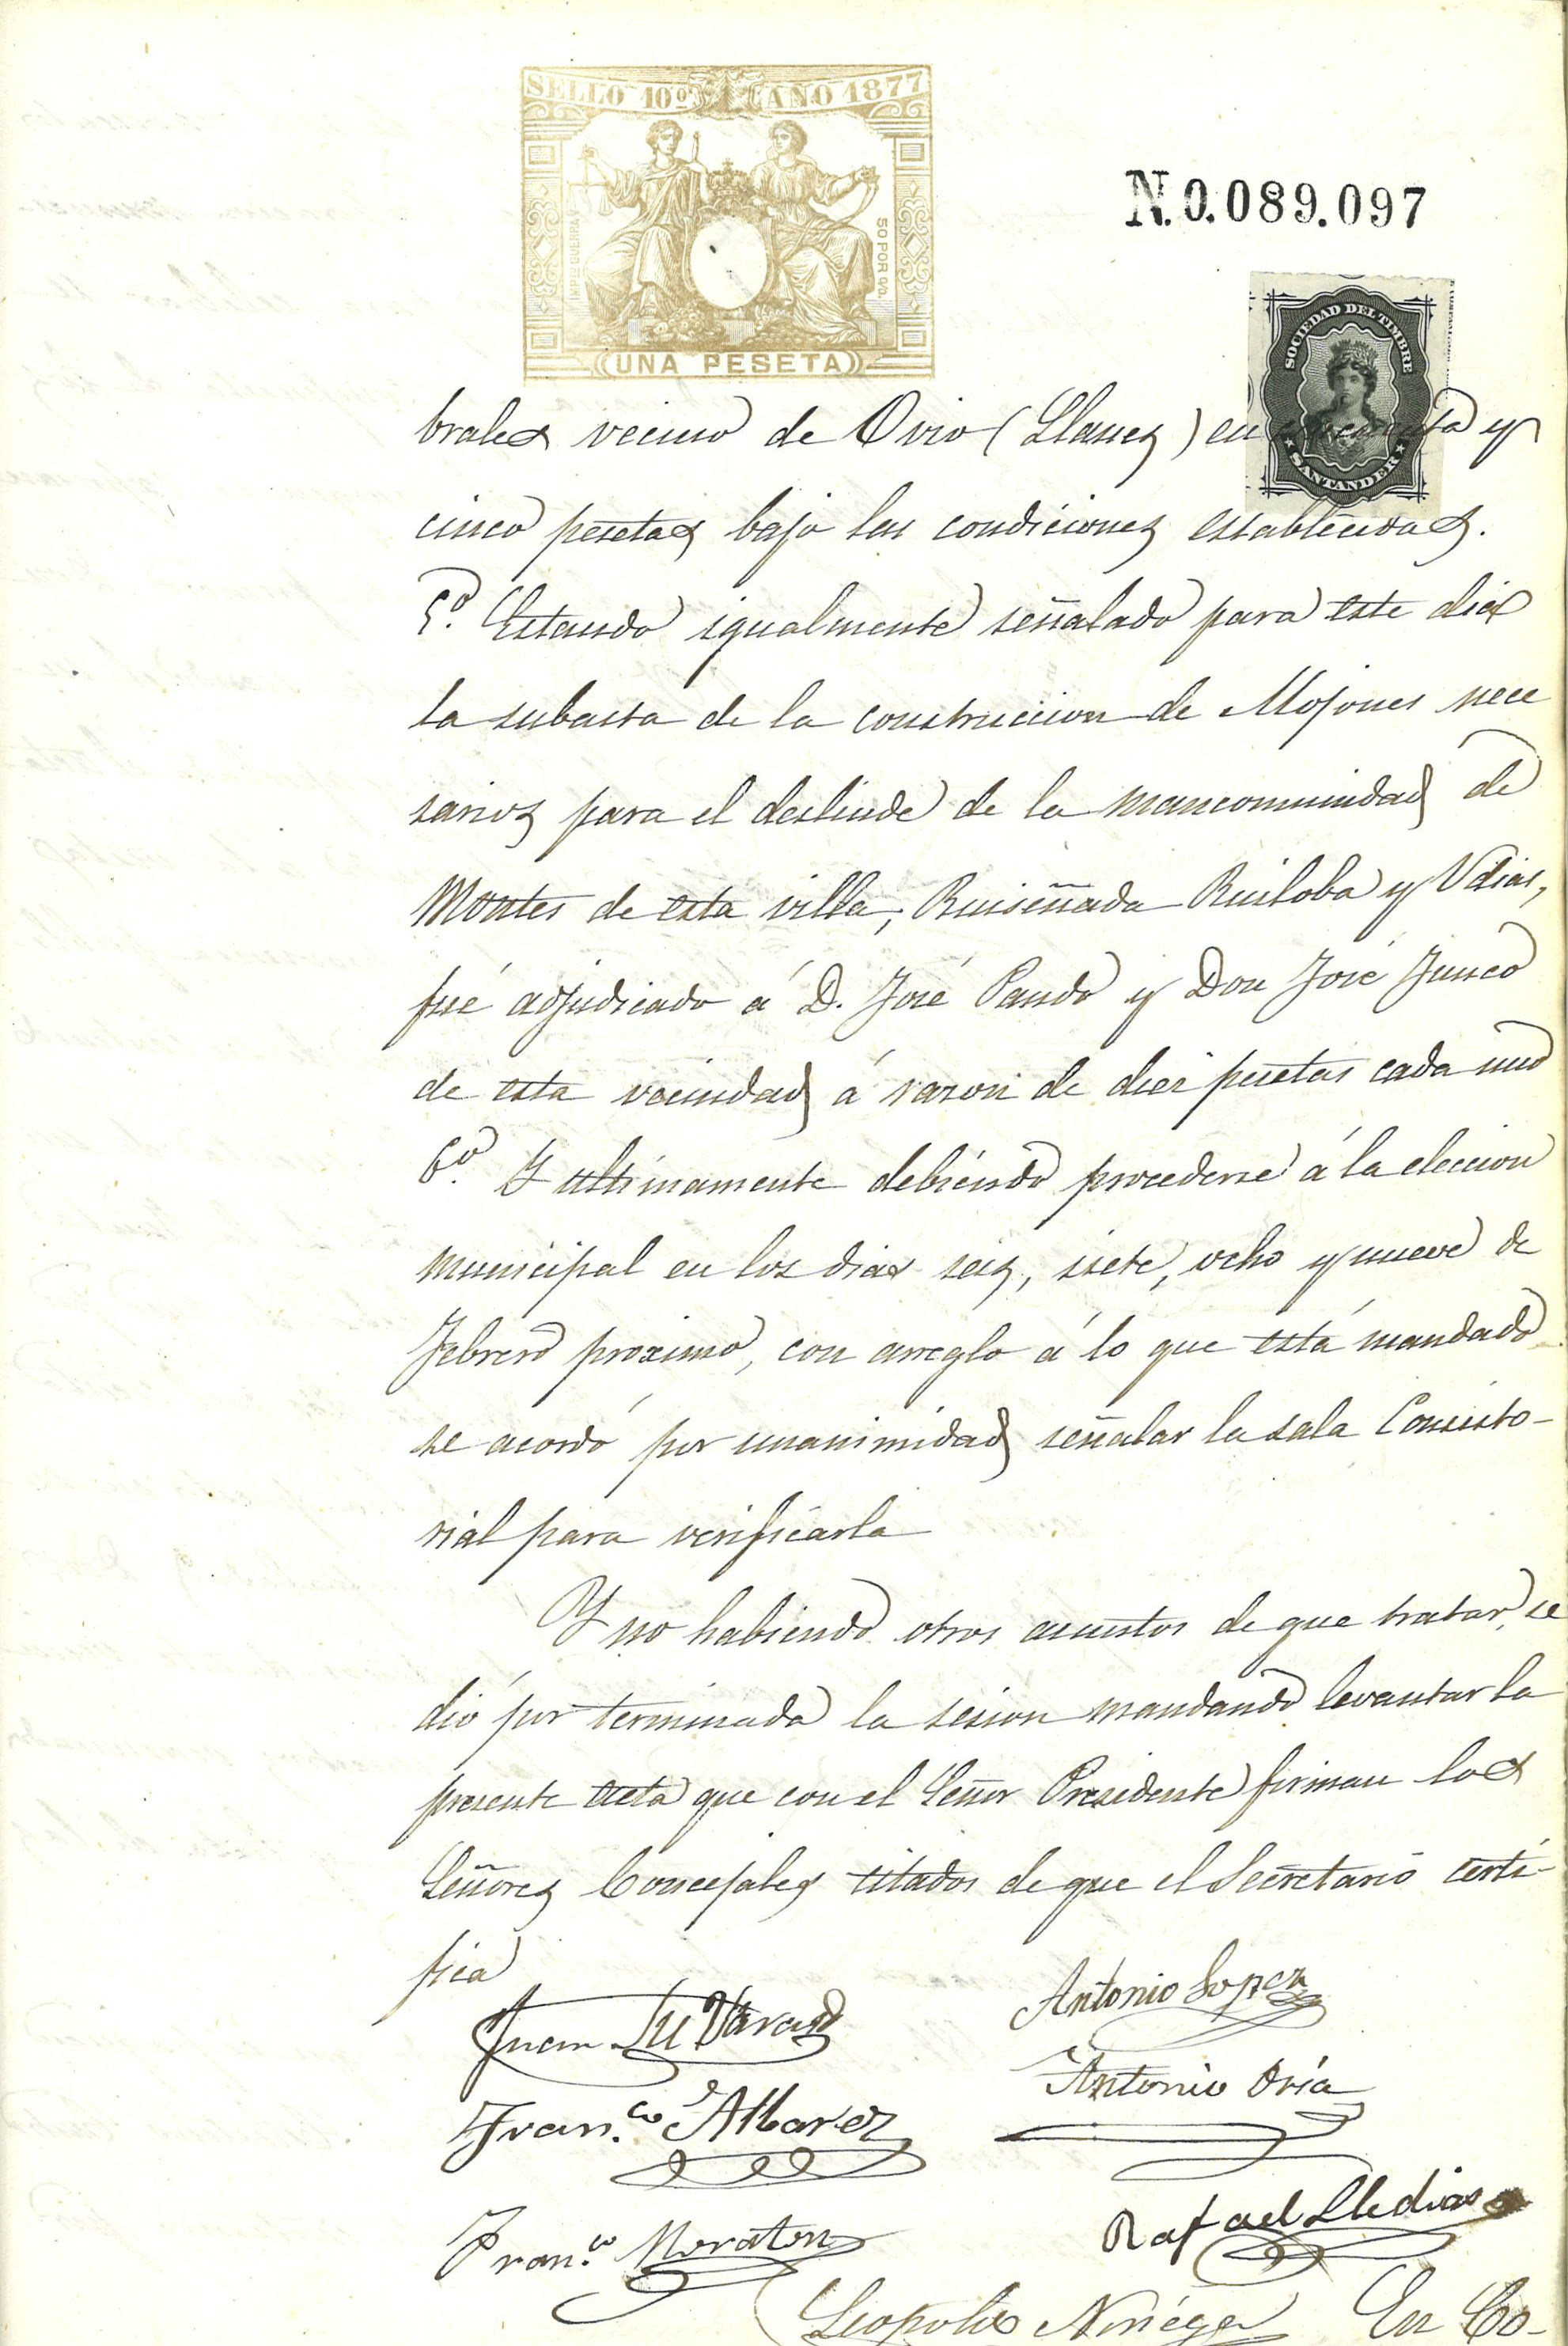 SELLO 10º AÑO 1877
IMPTE GUERRAS 50 POR 0/0.
UNA PESETA
N.0.089.097
SOCIEDAD DEL TIMBRE
SANTANDER
brales vecino de Ovio (Llanes) en y
cinco pesetas bajo las condiciones establecidas.
5º. Estando igualmente señalado para este dia
la subasta de la construccion de Mojones nece
sarios para el deslinde de la mancomunidad de
Montes de esta villa, Ruiseñada Ruiloba y Udias,
fué adjudicado á D. José Pando y Don José Junco
de esta vecindad á razon de diez pesetas cada uno
6º. Y ultimamente debiendo procederse á la eleccion
municipal en los dias seis, siete, ocho y nueve de
Febrero proximo, con arreglo á lo que está mandado
se acordó por unanimidad señalar la sala Consisto-
rial para verificarla
Y no habiendo otros asuntos de que tratar, se
dió por terminada la sesion mandando levantar la
presente acta que con el Señor Presidente firman los
Señores Concejales citados de que el Secretario certi-
fica
Juan Antonio Lopez
Antonio Oria
Fran.co Albarez
Rafael Lledias
Fran.co Moraton
Leopoldo Noriega En Co-